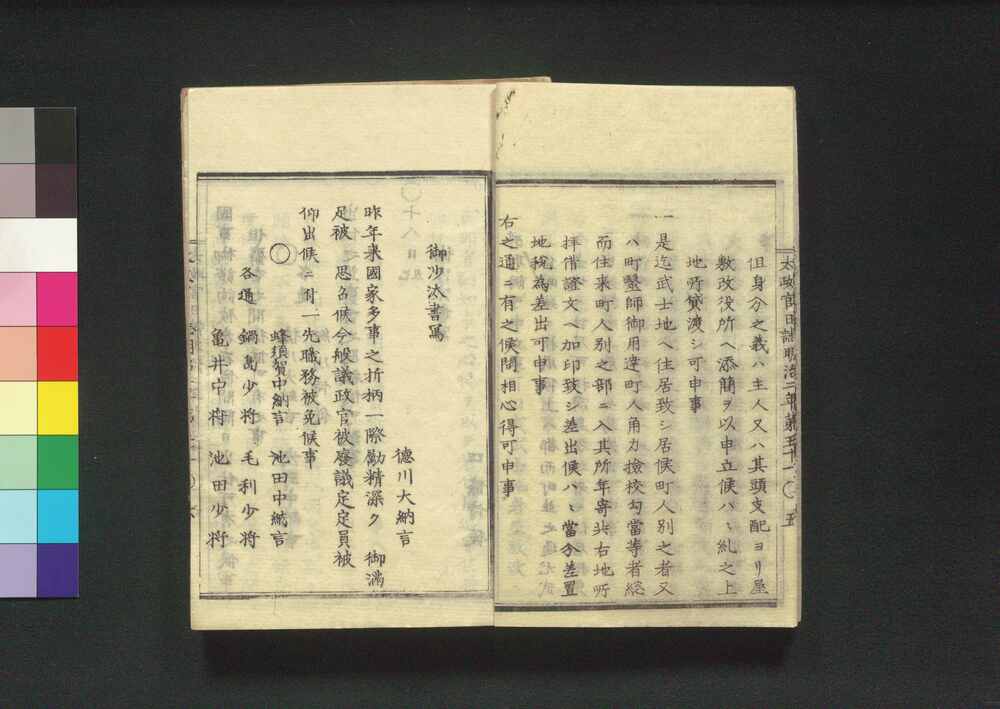 太政官日誌明治二年第五十一〇五
但身分之義ハ主人又ハ其頭支配ヨリ屋
敷改役所ヘ添簡ヲ以申立候ハヽ糺之上
地所貸渡シ可申事
一是迄武士地ヘ住居致シ居候町人別之者又
ハ町醫師御用達町人角力撿校勾當等者総
而住来町人別之部ニ入其所年寄共右地所
拝借證文ヘ加印致シ差出候ハヽ當分差置
地税為差出可申事
右之通ニ有之候間相心得可申事
御沙汰書寫
徳川大納言
昨年来國家多事之折柄一際勵精深ク 御滿
足被 思召候今般議政官被廢議定定員被
仰出候ニ付一先職務被免候事
〇 蜂須賀中納言 池田中納言
各通 鍋島少将 毛利少将
亀井中将 池田少将